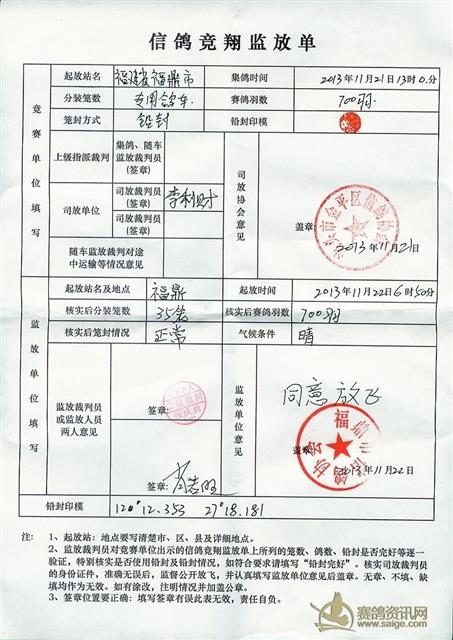 信鸽竞翔监放单
竞赛单位填写
起放站名 福建省福鼎市 集鸽时间 2013年11月21日13时0分
分装笼数 专用鸽车 赛鸽羽数 700羽
笼封方式 铅封 铅封印模
上级指派裁判 集鸽、随车监放裁判员(签章)
司放单位 司放裁判员(签章) 李利财
司放裁判员(签章)
司放协会意见 盖章: 2013年11月21日
市金平区信鸽协会
随车监放裁判对途中运输等情况意见
监放单位填写
起放站名及地点 福鼎 起放时间 2013年11月22日6时50分
核实后分装笼数 35笼 核实后赛鸽羽数 700羽
核实后笼封情况 正常 气候条件 晴
监放裁判员或监放人员两人意见 签章:
签章:
监放单位意见 同意放飞
福鼎市信鸽协会
盖章: 2013年11月22日
铅封印模 120°12.353 27°18.181
注: 1、起放站:地点要写清楚市、区、县及详细地点。
2、监放裁判员对竞赛单位出示的信鸽竞翔监放单上所列的笼数、鸽数、铅封是否完好等逐一
验证,特别核实是否使用铅封及铅封情况,如符合要求请填写“铅封完好”。核实司放裁判员
的身份证件,准确无误后,监督公开放飞,并认真填写监放单位意见后盖章。无章、不填、缺
填均作为无效。如有涂改,注明情况并加盖公章。
3、签章位置要正确:填写签章有误此表无效,责任自负。
赛鸽资讯网
www.saige.com